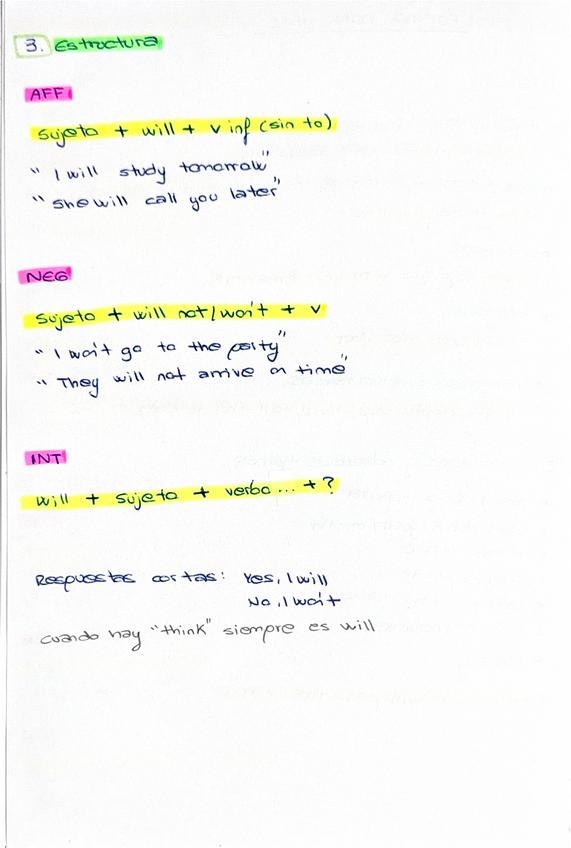 3. Estructura
AFF
Sujeto + will + v inf (sin to)
" I will study tomorrow"
" She will call you later"
NEG
Sujeto + will not/won't + v
" I won't go to the party"
" They will not arrive on time"
INT
Will + sujeto + verbo ... + ?
Respuestas cortas: Yes, I will
No, I won't
cuando hay "think" siempre es will